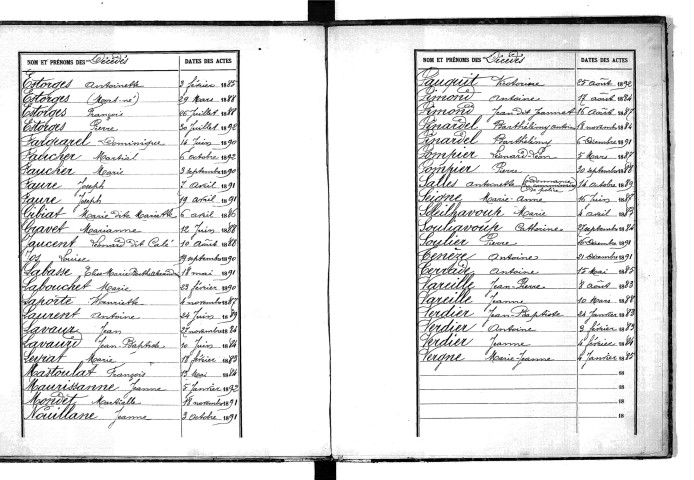 NOM ET PRÉNOMS DES Décédés DATES DES ACTES
Estorges Antoinette 3 février 1885
Estorges (Mort-né) 29 Mars 1888
Estorges François 26 Juillet 1888
Estorges Pierre 30 Juillet 1892
Fargearel Dominique 14 Juin 1890
Faucher Martial 6 octobre 1892
Faucher Marie 3 septembre 1890
Faure Joseph 7 Avril 1891
Faure Joseph 19 avril 1891
Gibiat Marie dite Mariette 6 avril 1886
Gravet Marianne 12 Juin 1888
Jaucent Léonard dit Calé 10 Août 1888
Jos Louise 29 septembre 1890
Labasse 18 mai 1891
Labouchet Marie 23 février 1890
Laporte Henriette 4 novembre 1887
Laurent Antoine 24 Juin 1889
Lavaur Jean 27 novembre 1884
Lavaurd Jean-Baptiste 10 Juin 1884
Leyrat Marie 18 février 1883
Mastoulat François 13 Mai 1884
Maurissanne Jeanne 5 Janvier 1892
Mondit Martialle 18 novembre 1891
Nouillane Jeanne 3 octobre 1891
NOM ET PRÉNOMS DES Décédés DATES DES ACTES
Pauquit Victorine 25 août 1892
Pimond Antoine 17 août 1884
Pimond Jean dit Jeannet 16 Août 1887
Pinardel Barthélémy Antoine 18 novembre 1884
Pinardel Barthélémy 6 Décembre 1891
Pompier Léonard-Léon 5 Mars 1887
Pompier Pierre 30 septembre 1888
Salles Antoinette 14 octobre 1889
Seigne Marie-Anne 15 Juin 1887
Soulhavoup Marie 4 avril 1883
Souliavoup Catherine 27 septembre 1884
Soulier Pierre 16 décembre 1891
Tenèze Antoine 21 décembre 1891
Terrade Antoine 15 Mai 1885
Vareille Jean-Pierre 8 août 1883
Vareille Jeanne 10 Mars 1888
Verdier Jean-Baptiste 24 Janvier 1883
Verdier Antoine 9 février 1883
Verdier Jeanne 4 février 1884
Vergne Marie-Jeanne 4 Janvier 1885
18
18
18
18